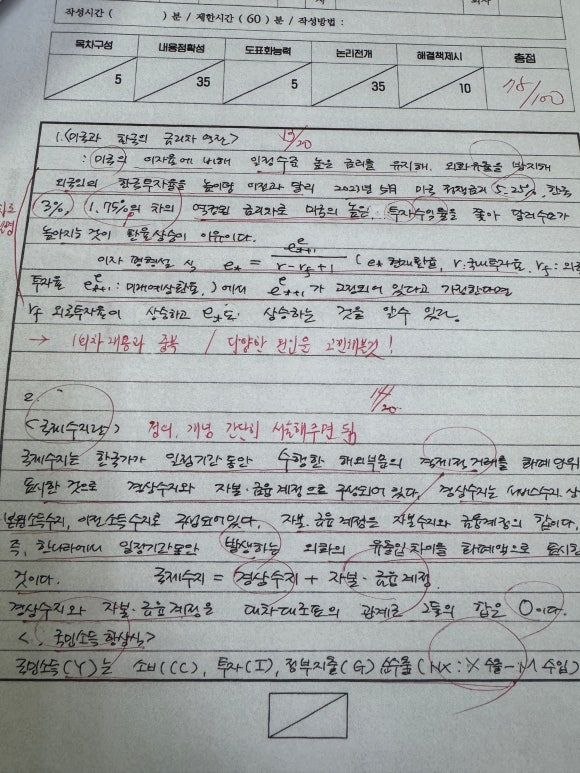 작성시간 ( ) 분 / 제한시간 ( 60 ) 분 / 작성방법 :
목차구성 내용정확성 도표화능력 논리전개 해결책제시 총점
5 35 5 35 10 78/100
1. <미국과 한국의 금리차 역전> 13/20
: 미국의 이자율에 비해 일정수준 높은 금리를 유지해. 외화유출을 방지해
외국인의 한국투자율을 높이던 이전과 달리 2023년 5월 미국 정책금리 5.25%, 한국
3%, 1.75%의 차의 역전된 금리차로 미국의 높은 투자수익률을 쫓아 달러수요가
높아지는 것이 환율상승의 이유이다.
이자 평형설 식 e* = e^e*+1 / r - rf + 1 ( e* 현재환율, r: 국내투자율, rf : 외국
투자율 e^e*+1 : 미래예상환율, ) 에서 e^e*+1 가 고정되어 있다고 가정한다면
rf 외국투자율이 상승하고 e*도 상승하는 것을 알수 있다.
→ 1회차 내용과 중복 / 다양한 원인을 고민해볼것!
2. 14/20
<국제수지란> 정의, 개념 간단히 서술해주면 됨
국제수지는 한국가가 일정기간 동안 수행한 해외부문의 경제적 거래를 화폐단위
표시한 것으로 경상수지와 자본·금융계정으로 구성되어 있다. 경상수지는 서비스수지, 상
본원소득수지, 이전소득수지로 구성되어있다. 자본·금융계정은 자본수지와 금융계정의 합이다.
즉, 한나라에서 일정기간동안 발생하는 외화의 유출입차이를 화폐액으로 표시한
것이다. 국제수지 = 경상수지 + 자본·금융계정
경상수지와 자본·금융계정은 대차대조표의 관계로 그들의 합은 0이다.
< 국민소득 항상식>
국민소득(Y)는 소비(C), 투자(I), 정부지출(G) 순수출(NX : X 수출 - M 수입)